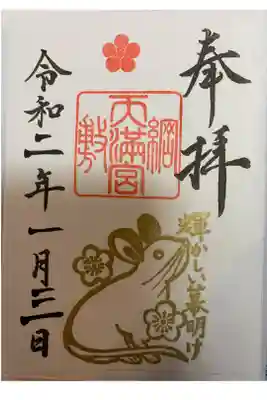 奉拝
綱敷
天満宮
輝かしい幕明け
令和二年一月三日